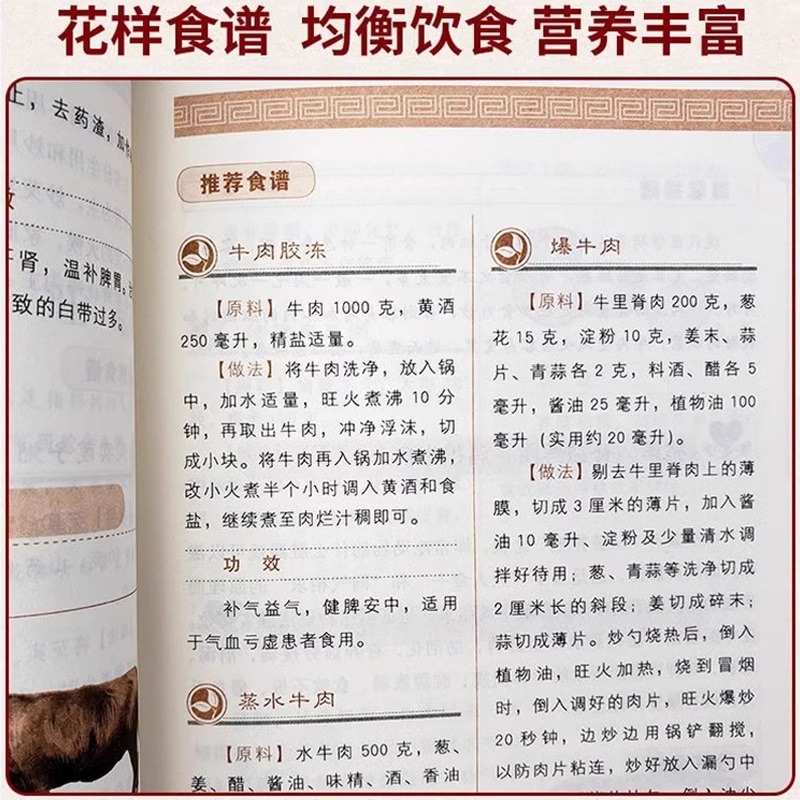 花样食谱 均衡饮食 营养丰富
上，去药渣，加
肾，温补脾胃。
致的白带过多。
推荐食谱
牛肉胶冻
【原料】牛肉 1000 克，黄酒
250 毫升，精盐适量。
【做法】将牛肉洗净，放入锅
中，加水适量，旺火煮沸 10 分
钟，再取出牛肉，冲净浮沫，切
成小块。将牛肉再入锅加水煮沸，
改小火煮半个小时调入黄酒和食
盐，继续煮至肉烂汁稠即可。
功 效
补气益气，健脾安中，适用
于气血亏虚患者食用。
蒸水牛肉
【原料】水牛肉 500 克，葱、
姜、醋、酱油、味精、酒、香油
爆牛肉
【原料】牛里脊肉 200 克，葱
花 15 克，淀粉 10 克，姜末、蒜
片、青蒜各 2 克，料酒、醋各 5
毫升，酱油 25 毫升，植物油 100
毫升（实用约 20 毫升）。
【做法】剔去牛里脊肉上的薄
膜，切成 3 厘米的薄片，加入酱
油 10 毫升、淀粉及少量清水调
拌好待用；葱、青蒜等洗净切成
2 厘米长的斜段；姜切成碎末；
蒜切成薄片。炒勺烧热后，倒入
植物油，旺火加热，烧到冒烟
时，倒入调好的肉片，旺火爆炒
20 秒钟，边炒边用锅铲翻搅，
以防肉片粘连，炒好放入漏勺中